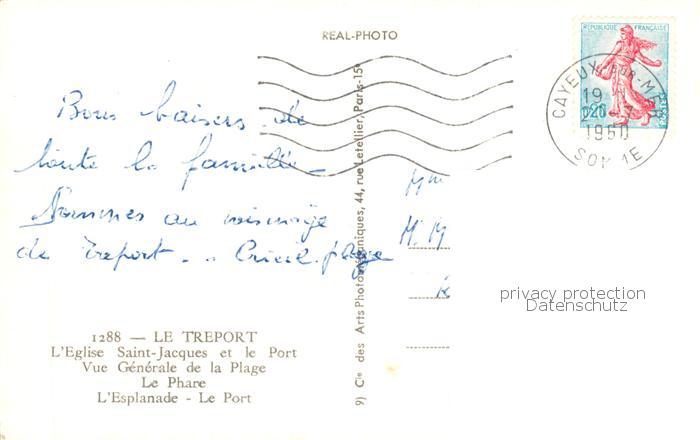 REAL-PHOTO
REPUBLIQUE FRANÇAISE
0,20
CAYEUX-SUR-MER
19
1960
SOMME
Bons baisers de
toute la famille
Sommes au voisinage
de Treport - Criel plage
Mme
M. M
9) Cie des Arts Photomécaniques, 44, rue Letellier, Paris-15e
privacy protection
Datenschutz
1288 — LE TREPORT
L'Eglise Saint-Jacques et le Port
Vue Générale de la Plage
Le Phare
L'Esplanade - Le Port